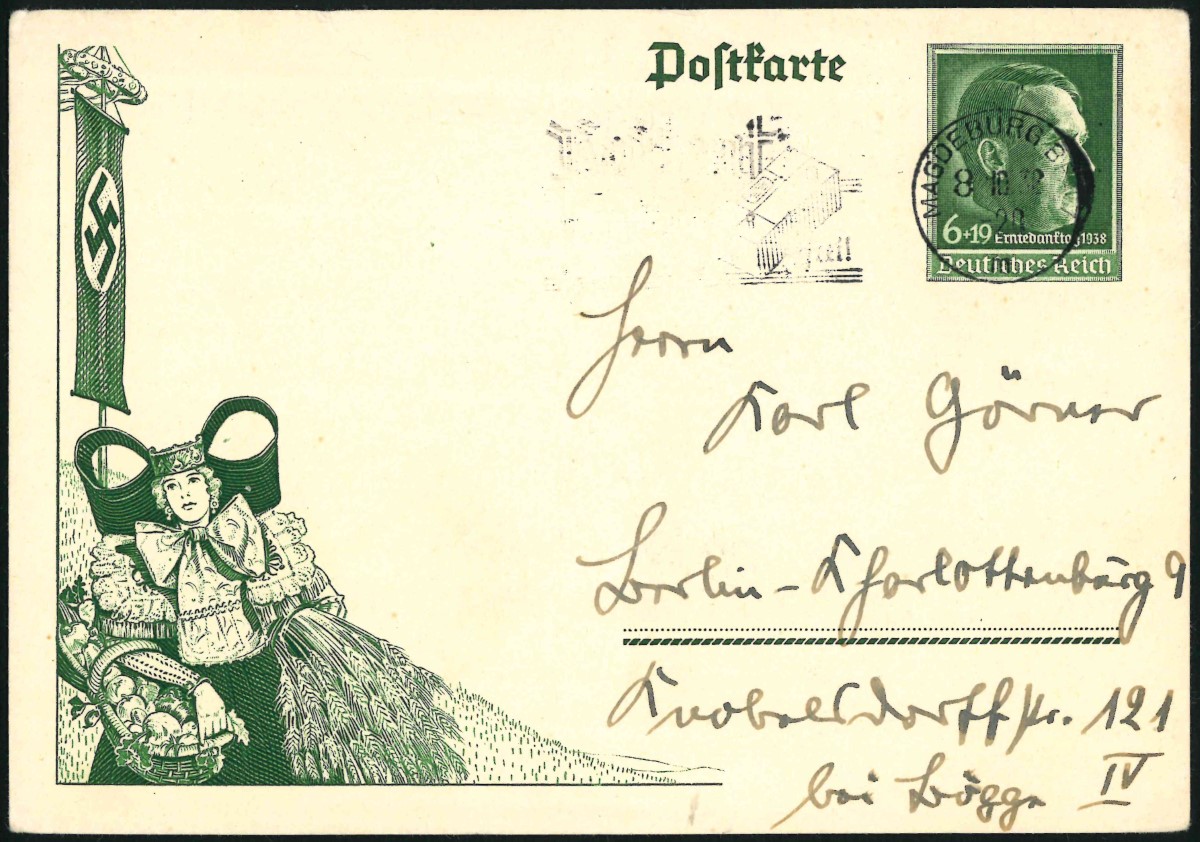 Postkarte
MAGDEBURG
8 10 38
20
m
6+19 Erntedanktag 1938
Deutsches Reich
Herrn
Karl Görner
Berlin-Charlottenburg 9
Knobelsdorffstr. 121
bei Bögge IV